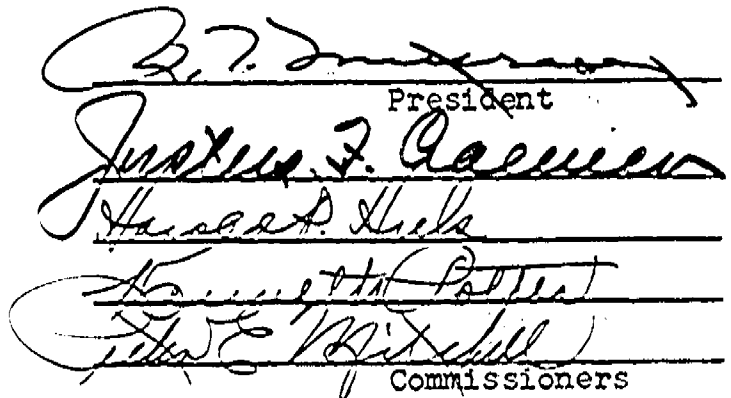 R. T.
President
Justus F. Craemer
Harold P. Huls
Kenneth Potter
Peter E. Mitchell
Commissioners